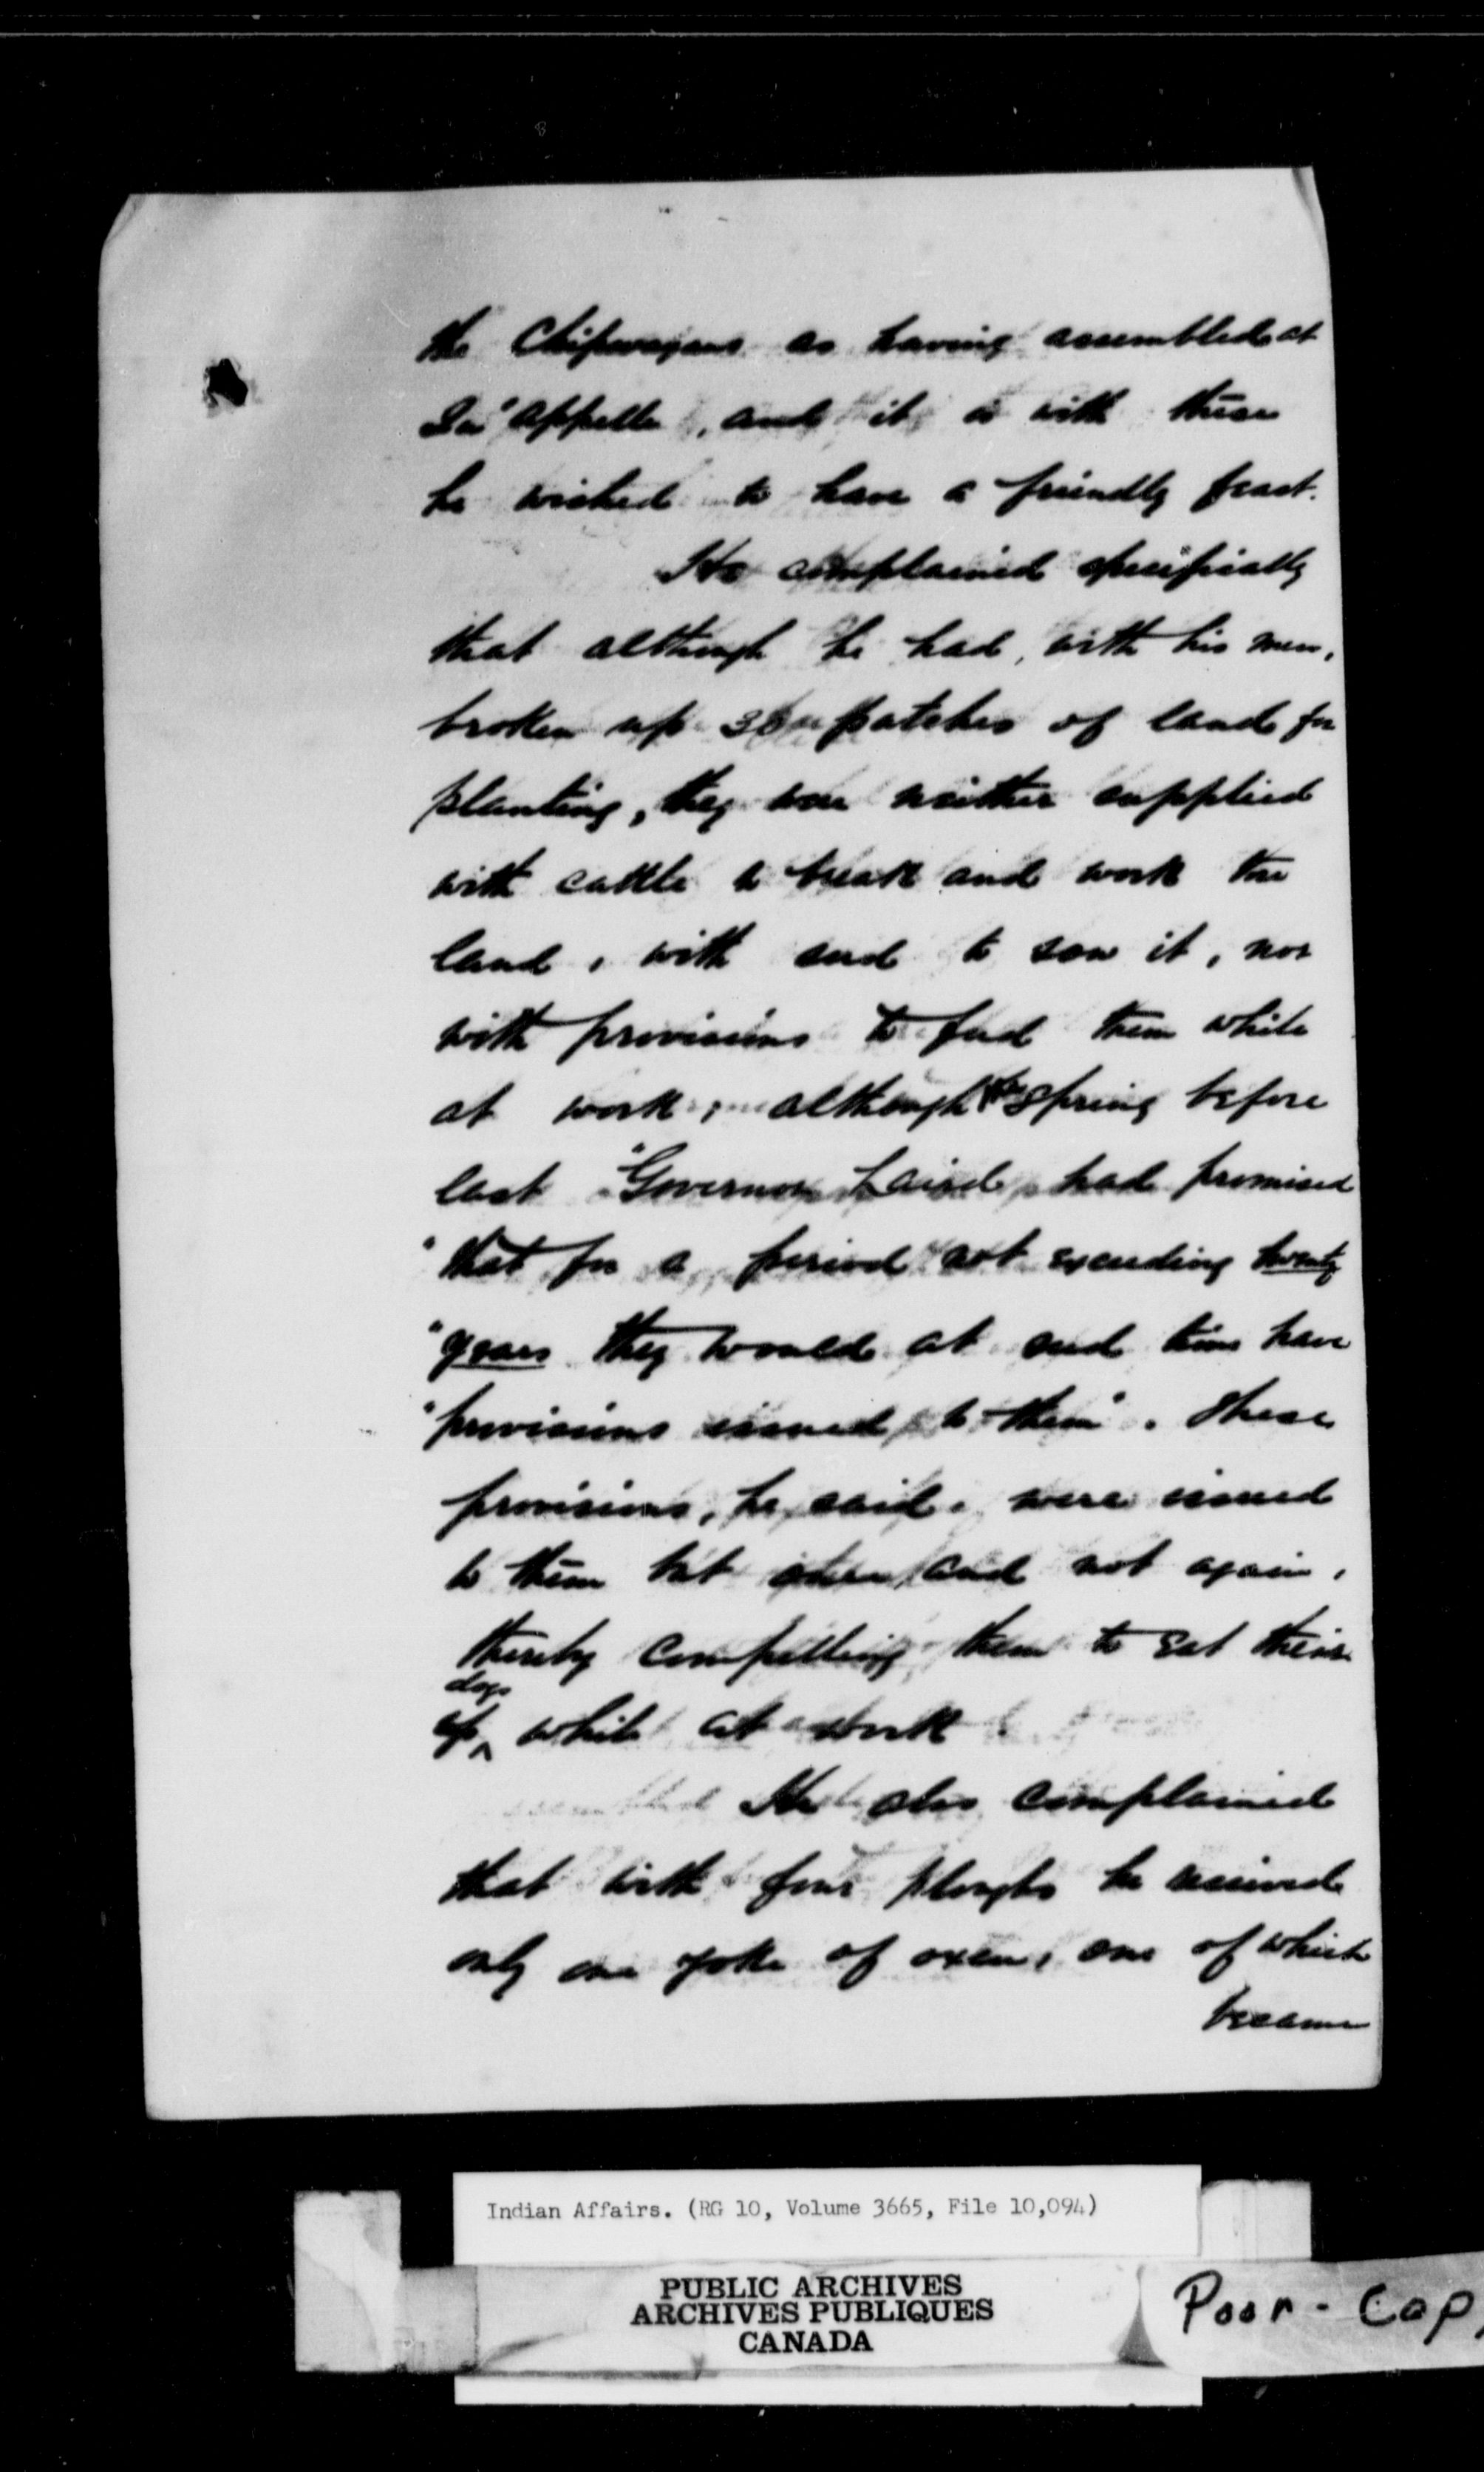 the Chipwayans as having assembled at
Qu'appelle, and it is with these
he wished to have a friendly feast.
He complained specifically
that although he had, with his men,
broken up patches of land for
planting, they were neither supplied
with cattle to break and work the
land, with seed to sow it, nor
with provisions to feed them while
at work; although the spring before
last "Governor Laird had promised
"that for a period not exceeding twenty
"years they would at seed time have
"provisions issued to them". These
provisions, he said, were issued
to them but once, and not again,
thereby compelling them to eat their
dogs
while at work.
He also complained
that with four ploughs he received
only one yoke of oxen, one of which
became
Indian Affairs. (RG 10, Volume 3665, File 10,094)
PUBLIC ARCHIVES
ARCHIVES PUBLIQUES
CANADA
Poor - Cop